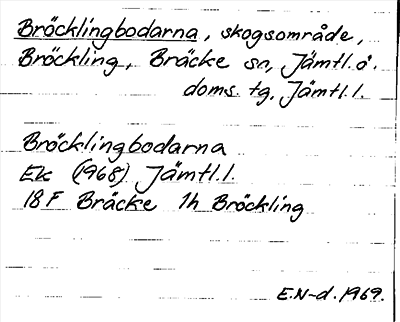 Bröcklingbodarna, skogsområde,
Bröckling, Bräcke sn, Jämtl. ö.
doms. tg, Jämtl. l.
Bröcklingbodarna
Ek (1968) Jämtl. l.
18 F Bräcke 1h Bröckling
E.N-d. 1969.